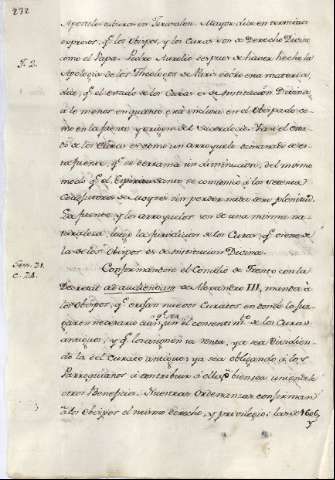 232
Apostoles estuvo en Jerusalen. Mayor dice en terminos
expresos, qe. los Obispos, y los Curas son de Derecho Divino
como el Papa. Pedro Aurelio despues de haver hecho la
T. 2. Apologia de los Theologos de Paris sobre esta materia,
dice, qe. el estado de los Curas es de institucion Divina,
à lo menos en quanto està incluso en el Obispado co-
mo en la fuente y origen del Sacerdocio. Vierte el esta-
do de los Curas es como un arroyuelo derivado de es-
ta fuente, qe. se derrama sin diminucion, del mismo
modo qe. el Espiritu Santo se comunicò à los setenta
Coadjutores de Moyses sin perder nada de su plenitud.
La fuente y los arroyuelos son de una misma na-
turaleza: luego la jurisdiccion de los Curas, qe. viene de
la de los Obispos es de institucion Divina.
Sess. 21.
c. 24.
Conformandose el Concilio de Trento con la
Decretal ad audientiam de Alexandro III, manda à
los Obispos, qe. erijan nuevos Curatos en donde lo juz-
garen necesario aun sin el consentimto. de los Curas
antiguos, y qe. les asignen su renta, ya sea dividien-
do la del Curato antiguo, ya sea obligando à los
Parroquianos à contribuir à ello, o bien sea uniendole
otros Beneficios. Nuestras Ordenanzas confirman
à los Obispos el mismo derecho, y privilegio: la de 1606,
y